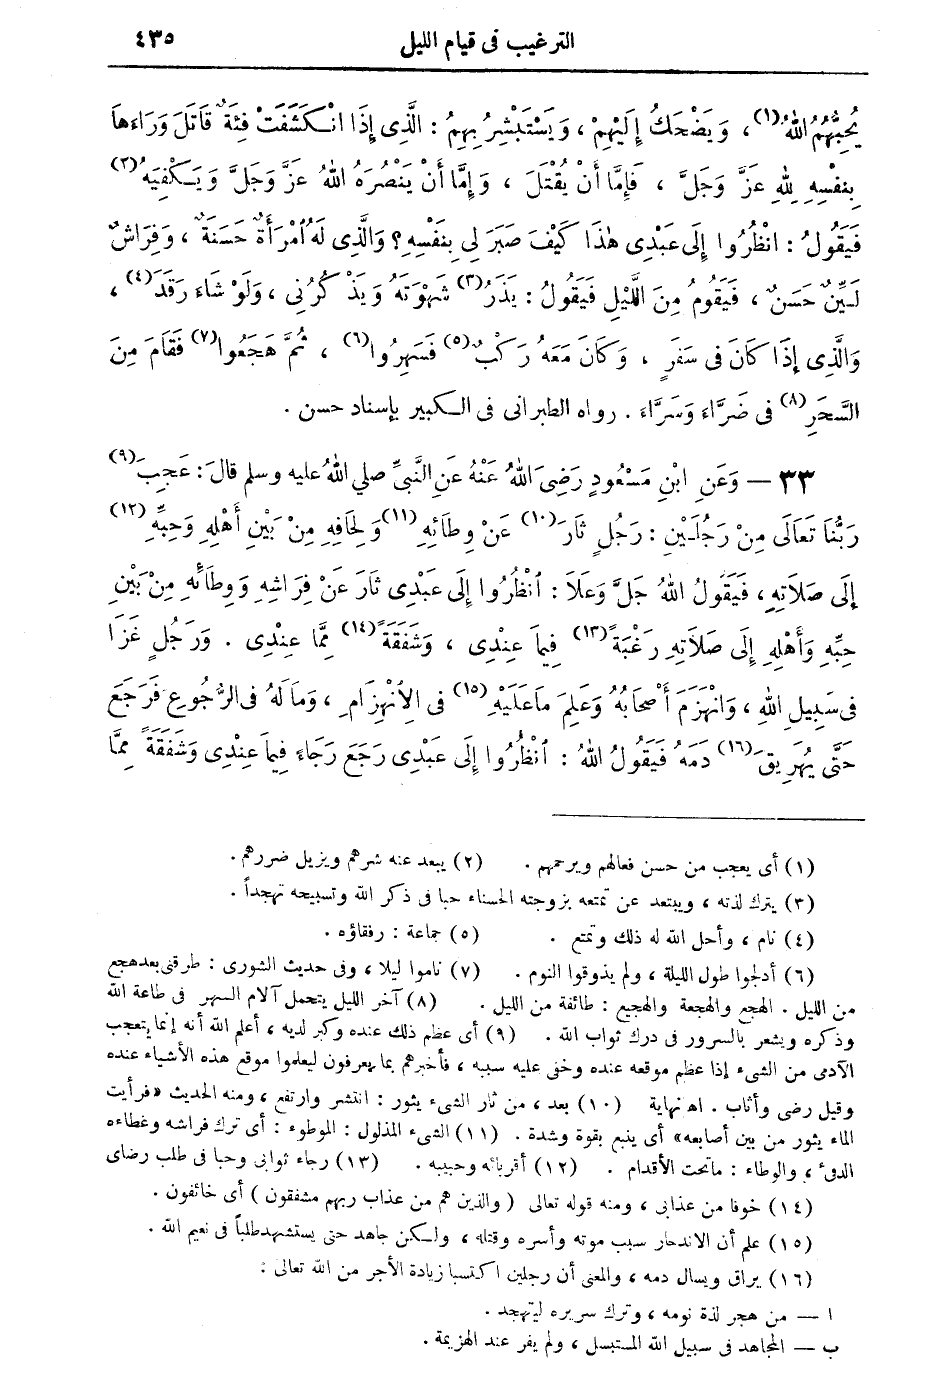 الترغيب فى قيام الليل ٤٣٥
يُحِبُّهُمُ اللهُ(١) ، وَيَضْحَكُ إِلَيْهِمْ ، وَيَسْتَبْشِرُ بِهِمُ : الَّذِى إِذَا انْكَشَفَتْ فِئَةٌ قَاتَلَ وَرَاءَهَا
بِنَفْسِهِ لِلهِ عَزَّ وَجَلَّ ، فَإِمَّا أَنْ يُقْتَلَ ، وَإِمَّا أَنْ يَنْصُرَهُ اللهُ عَزَّ وَجَلَّ وَيَكْفِيَهُ(٢)
فَيَقُولُ : انْظُرُوا إِلَى عَبْدِى هٰذَا كَيْفَ صَبَرَ لِى بِنَفْسِهِ ؟ وَالَّذِى لَهُ امْرَأَةٌ حَسَنَةٌ ، وَفِرَاشٌ
لَيِّنٌ حَسَنٌ ، فَيَقُومُ مِنَ اللَّيْلِ فَيَقُولُ : يَذَرُ(٣) شَهْوَتَهُ وَيَذْكُرُنِى ، وَلَوْ شَاءَ رَقَدَ(٤) ،
وَالَّذِى إِذَا كَانَ فِى سَفَرٍ ، وَكَانَ مَعَهُ رَكْبٌ(٥) فَسَهِرُوا(٦) ، ثُمَّ هَجَعُوا(٧) فَقَامَ مِنَ
السَّحَرِ(٨) فِى ضَرَّاءَ وَسَرَّاءَ . رواه الطبرانى فى الكبير بإسناد حسن .
٣٣ — وَعَنِ ابْنِ مَسْعُودٍ رَضِىَ اللهُ عَنْهُ عَنِ النَّبِىِّ صلي اللهُ عليه وسلم قالَ : عَجِبَ(٩)
رَبُّنَا تَعَالَى مِنْ رَجُلَيْنِ : رَجُلٍ ثَارَ(١٠) عَنْ وِطَائِهِ(١١) وَلِحَافِهِ مِنْ بَيْنِ أَهْلِهِ وَحِبِّهِ(١٢)
إِلَى صَلَاتِهِ ، فَيَقُولُ اللهُ جَلَّ وَعَلَا : انْظُرُوا إِلَى عَبْدِى ثَارَ عَنْ فِرَاشِهِ وَوِطَائِهِ مِنْ بَيْنِ
حِبِّهِ وَأَهْلِهِ إِلَى صَلَاتِهِ رَغْبَةً(١٣) فِيمَا عِنْدِى ، وَشَفَقَةً(١٤) مِمَّا عِنْدِى . وَرَجُلٍ غَزَا
فِى سَبِيلِ اللهِ ، وَانْهَزَمَ أَصْحَابُهُ وَعَلِمَ مَا عَلَيْهِ(١٥) فِى الِانْهِزَامِ ، وَمَا لَهُ فِى الرُّجُوعِ فَرَجَعَ
حَتَّى يُهْرِيقَ(١٦) دَمَهُ فَيَقُولُ اللهُ : انْظُرُوا إِلَى عَبْدِى رَجَعَ رَجَاءً فِيمَا عِنْدِى وَشَفَقَةً مِمَّا
(١) أى يعجب من حسن فعالهم ويرحمهم . (٢) يبعد عنه شرهم ويزيل ضررهم .
(٣) يترك لذته ، ويبتعد عن تمتعه بزوجته الحسناء حبا فى ذكر الله وتسبيحه تهجداً .
(٤) نام ، وأحل الله له ذلك وتمتع . (٥) جماعة : رفقاؤه .
(٦) أدلجوا طول الليلة ، ولم يذوقوا النوم . (٧) ناموا ليلا ، وفى حديث الشورى : طرقنى بعد هجع
من الليل . الهجع والهجعة والهجيع : طائفة من الليل . (٨) آخر الليل يتحمل آلام السهر فى طاعة الله
وذكره ويشعر بالسرور فى درك ثواب الله . (٩) أى عظم ذلك عنده وكبر لديه ، أعلم الله أنه إنما يتعجب
الآدمى من الشىء إذا عظم موقعه عنده وخفى عليه سببه ، فأخبرهم بما يعرفون ليعلموا موقع هذه الأشياء عنده
وقيل رضى وأثاب . اه نهاية (١٠) بعد ، من ثار الشىء يثور : انتشر وارتفع ، ومنه الحديث «فرأيت
الماء يثور من بين أصابعه» أى ينبع بقوة وشدة . (١١) الشىء المذلول : الموطوء : أى ترك فراشه وغطاءه
الدفء ، والوطاء : ماتحت الأقدام . (١٢) أقربائه وحبيبه . (١٣) رجاء ثوابى وحبا فى طلب رضاى
(١٤) خوفا من عذابى ، ومنه قوله تعالى ( والذين هم من عذاب ربهم مشفقون ) أى خائفون .
(١٥) علم أن الاندحار سبب موته وأسره وقتله ، ولكن جاهد حتى يستشهد طلباً فى نعيم الله .
(١٦) يراق ويسال دمه ، والمعنى أن رجلين اكتسبا زيادة الأجر من الله تعالى :
ا — من هجر لذة نومه ، وترك سريره ليتهجد .
ب — المجاهد فى سبيل الله المستبسل ، ولم يفر عند الهزيمة .